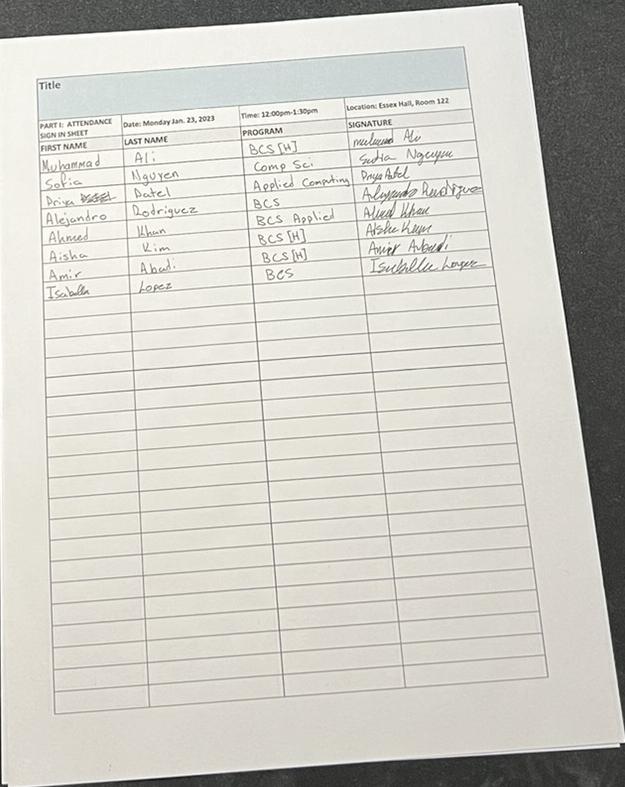 Title
PART I: ATTENDANCE SIGN IN SHEET Date: Monday Jan. 23, 2023 Time: 12:00pm-1:30pm Location: Essex Hall, Room 122
FIRST NAME LAST NAME PROGRAM SIGNATURE
Muhammad Ali BCS [H] Ali
Sofia Nguyen Comp Sci. Sofia Nguyen
Priya Patel Applied Computing Priya Patel
Alejandro Rodriguez BCS Alejandro Rodriguez
Ahmed Khan BCS Applied Ahmed Khan
Aisha Kim BCS [H] Aisha Kim
Amir Abadi BCS [H] Amir Abadi
Isabella Lopez BCS Isabella Lopez